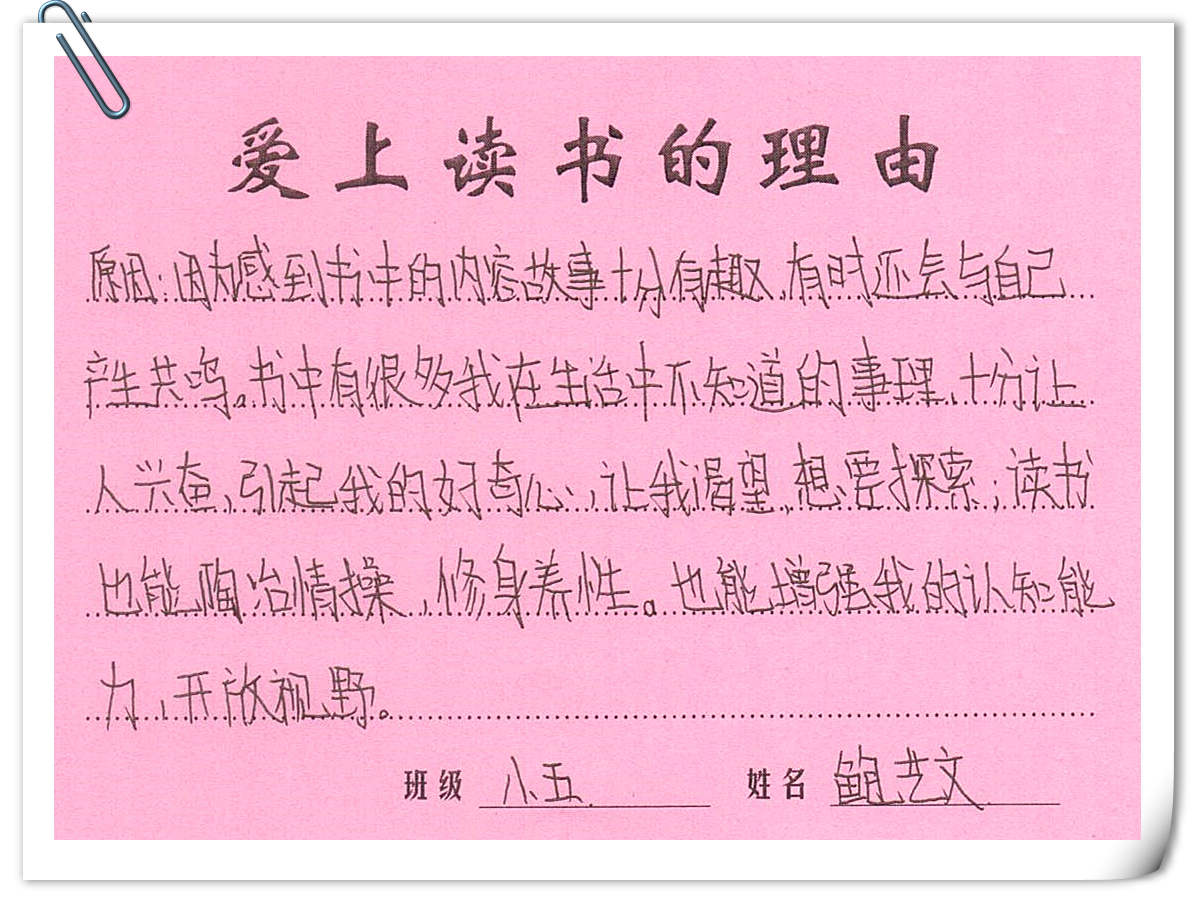 爱上读书的理由
原因:因为感到书中的内容故事十分有趣,有时还会与自己
产生共鸣。书中有很多我在生活中不知道的事理,十分让
人兴奋,引起我的好奇心,让我渴望,想要探索;读书
也能陶冶情操,修身养性。也能增强我的认知能
力,开放视野。
班级 八五 姓名 鲍艺文